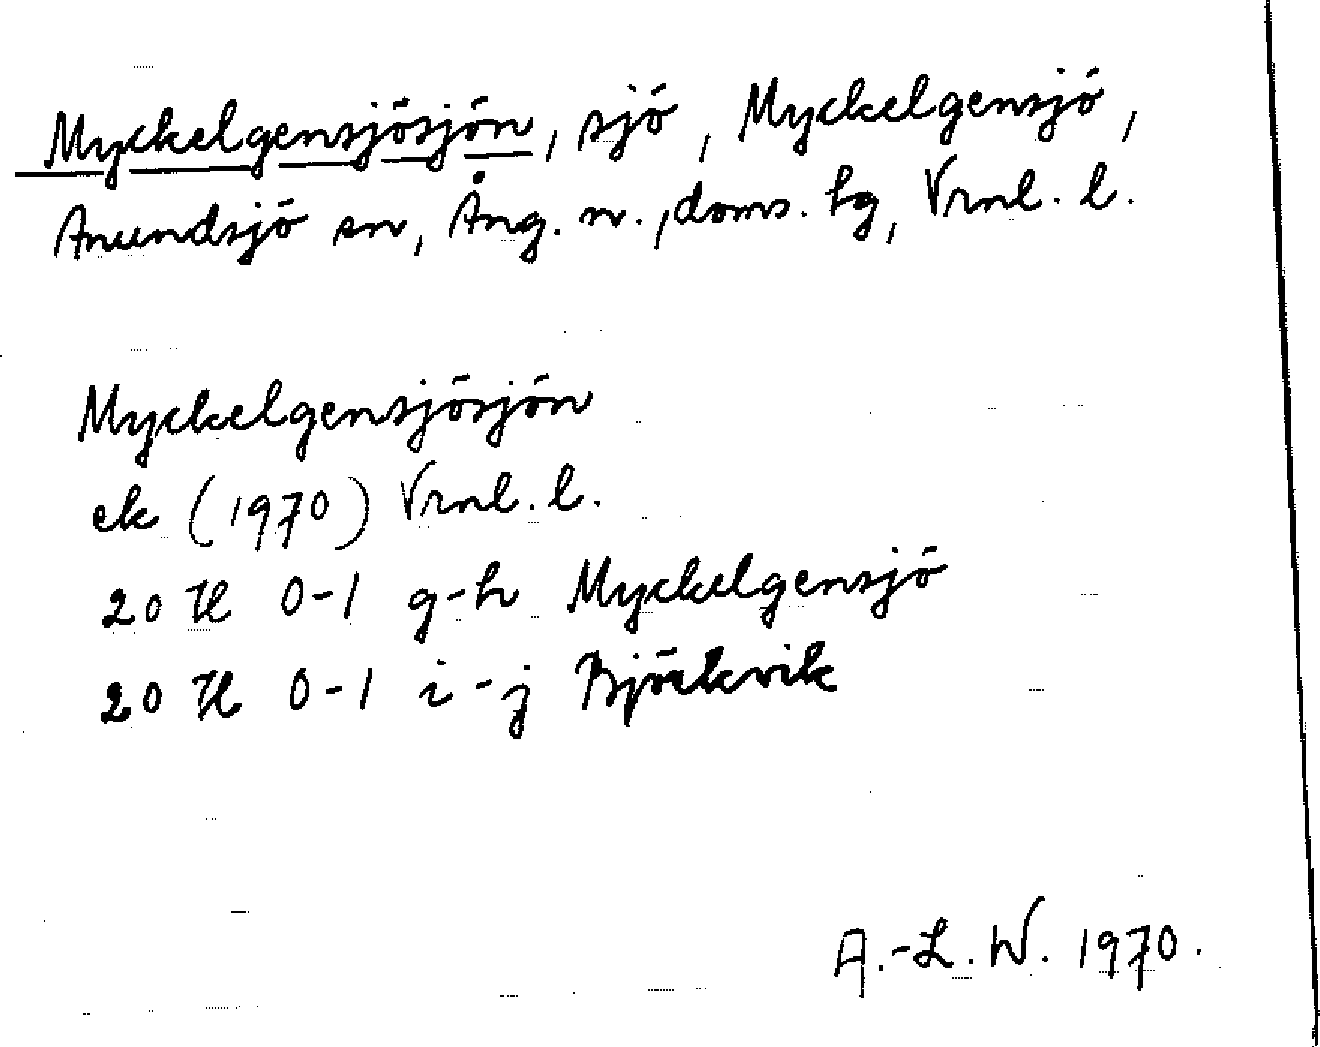 Myckelgensjösjön, sjö, Myckelgensjö,
Anundsjö sn, Ång. n., doms. hg, Vrnl. l.
Myckelgensjösjön
ek (1970) Vrnl. l.
20 H 0-1 g-h Myckelgensjö
20 H 0-1 i-j Björkvik
A.-L. W. 1970.